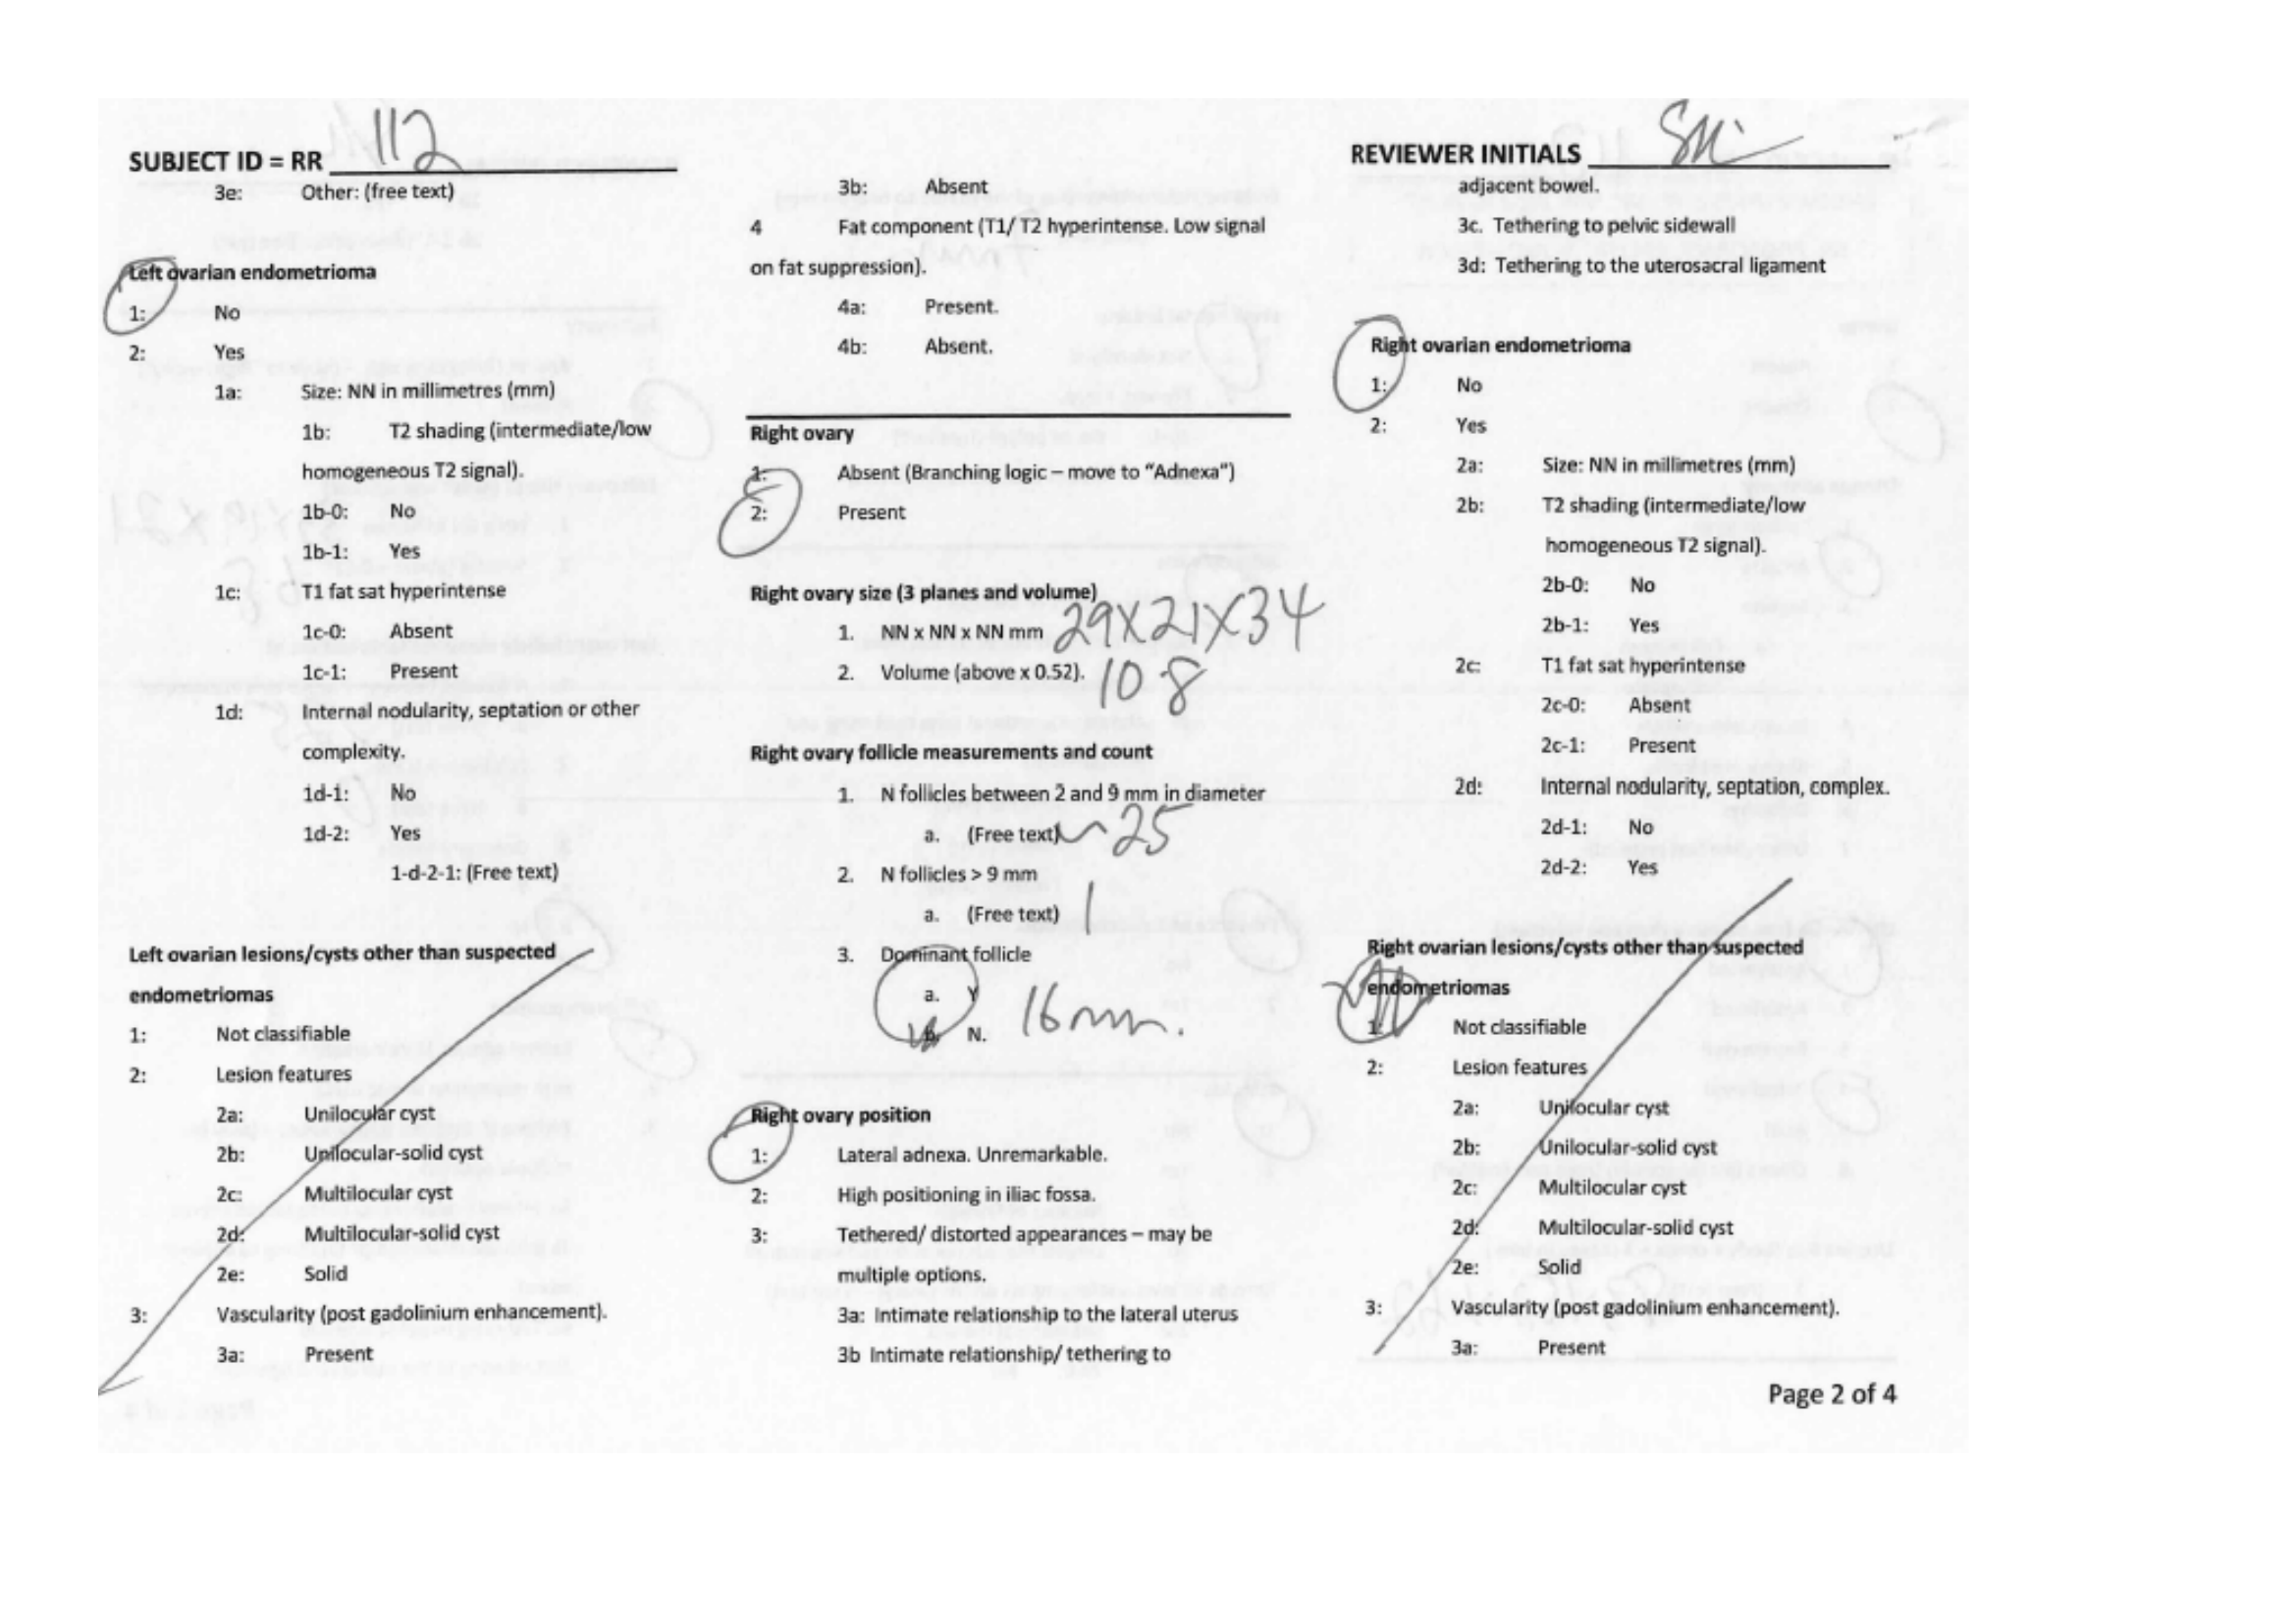 SUBJECT ID = RR 112
3e: Other: (free text)
Left ovarian endometrioma
1: No
2: Yes
1a: Size: NN in millimetres (mm)
1b: T2 shading (intermediate/low
homogeneous T2 signal).
1b-0: No
1b-1: Yes
1c: T1 fat sat hyperintense
1c-0: Absent
1c-1: Present
1d: Internal nodularity, septation or other
complexity.
1d-1: No
1d-2: Yes
1-d-2-1: (Free text)
Left ovarian lesions/cysts other than suspected
endometriomas
1: Not classifiable
2: Lesion features
2a: Unilocular cyst
2b: Unilocular-solid cyst
2c: Multilocular cyst
2d: Multilocular-solid cyst
2e: Solid
3: Vascularity (post gadolinium enhancement).
3a: Present
3b: Absent
4 Fat component (T1/ T2 hyperintense. Low signal
on fat suppression).
4a: Present.
4b: Absent.
Right ovary
1: Absent (Branching logic – move to “Adnexa”)
2: Present
Right ovary size (3 planes and volume)
1. NN x NN x NN mm 29X21X34
2. Volume (above x 0.52). 10.8
Right ovary follicle measurements and count
1. N follicles between 2 and 9 mm in diameter
a. (Free text) ~25
2. N follicles > 9 mm
a. (Free text) 1
3. Dominant follicle
a. Y
b. N. 16mm.
Right ovary position
1: Lateral adnexa. Unremarkable.
2: High positioning in iliac fossa.
3: Tethered/ distorted appearances – may be
multiple options.
3a: Intimate relationship to the lateral uterus
3b Intimate relationship/ tethering to
REVIEWER INITIALS
adjacent bowel.
3c. Tethering to pelvic sidewall
3d: Tethering to the uterosacral ligament
Right ovarian endometrioma
1: No
2: Yes
2a: Size: NN in millimetres (mm)
2b: T2 shading (intermediate/low
homogeneous T2 signal).
2b-0: No
2b-1: Yes
2c: T1 fat sat hyperintense
2c-0: Absent
2c-1: Present
2d: Internal nodularity, septation, complex.
2d-1: No
2d-2: Yes
Right ovarian lesions/cysts other than suspected
endometriomas
1: Not classifiable
2: Lesion features
2a: Unilocular cyst
2b: Unilocular-solid cyst
2c: Multilocular cyst
2d: Multilocular-solid cyst
2e: Solid
3: Vascularity (post gadolinium enhancement).
3a: Present
Page 2 of 4